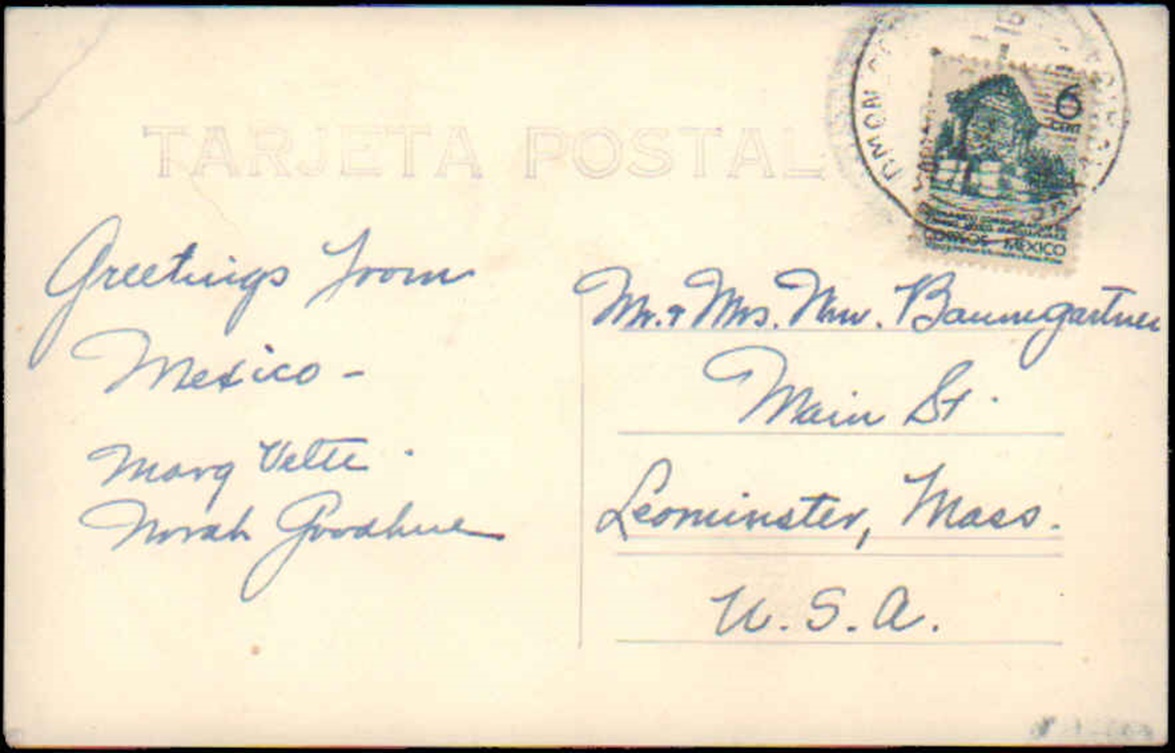 TARJETA POSTAL
6
CORREOS MEXICO
Greetings from
Mexico -
Marg Vette.
Norah Goodhue
Mr. & Mrs. Wm. Baumgartner
Main St.
Leominster, Mass.
U. S. A.